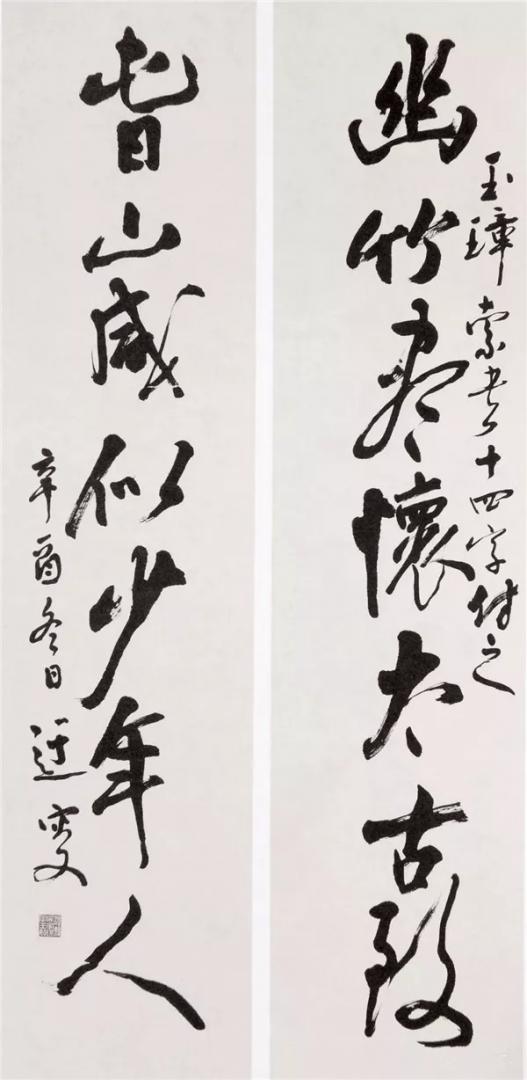 幽竹盡懷太古致
玉璋索書十四字付之
旾山咸似少年人
辛酉冬日